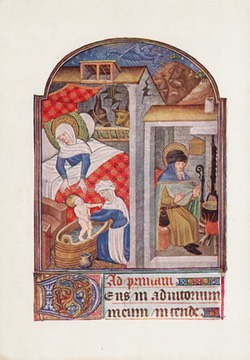 Ad primam
DEus in adiutorium
meum intende